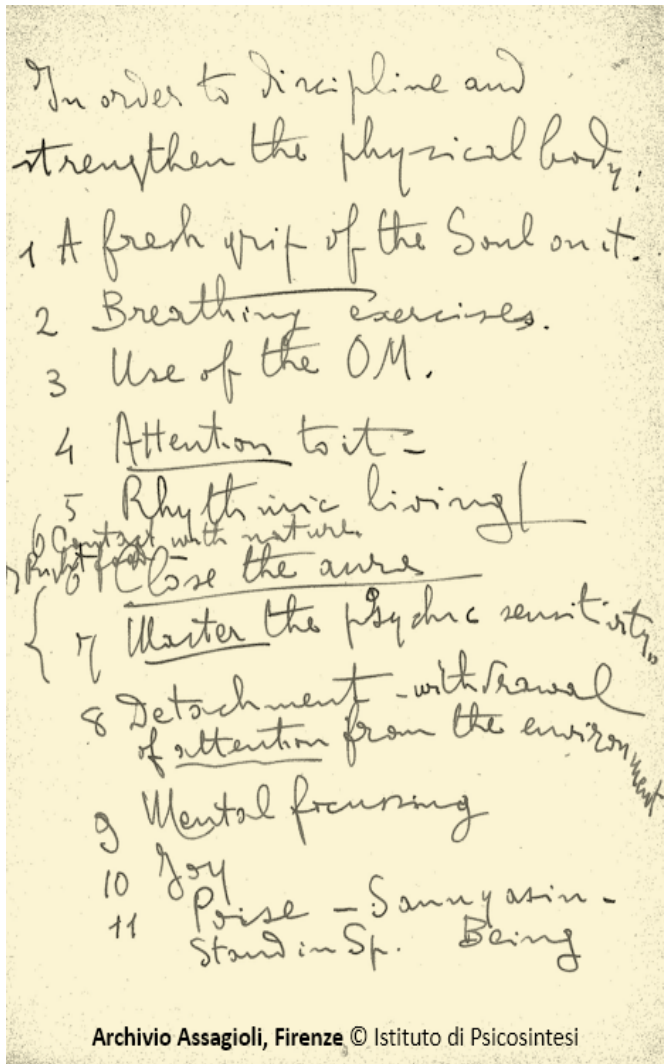 In order to discipline and
strengthen the physical body:
1 A fresh grip of the Soul on it.
2 Breathing exercises.
3 Use of the OM.
4 Attention to it -
5 Rhythmic living
6 Contact with nature
7 Right food
6 Close the aura
7 Master the psychic sensitivity
8 Detachment - withdrawal
of attention from the environment
9 Mental focussing
10 Joy
11 Poise - Sannyasin -
Stand in Sp. Being
Archivio Assagioli, Firenze © Istituto di Psicosintesi